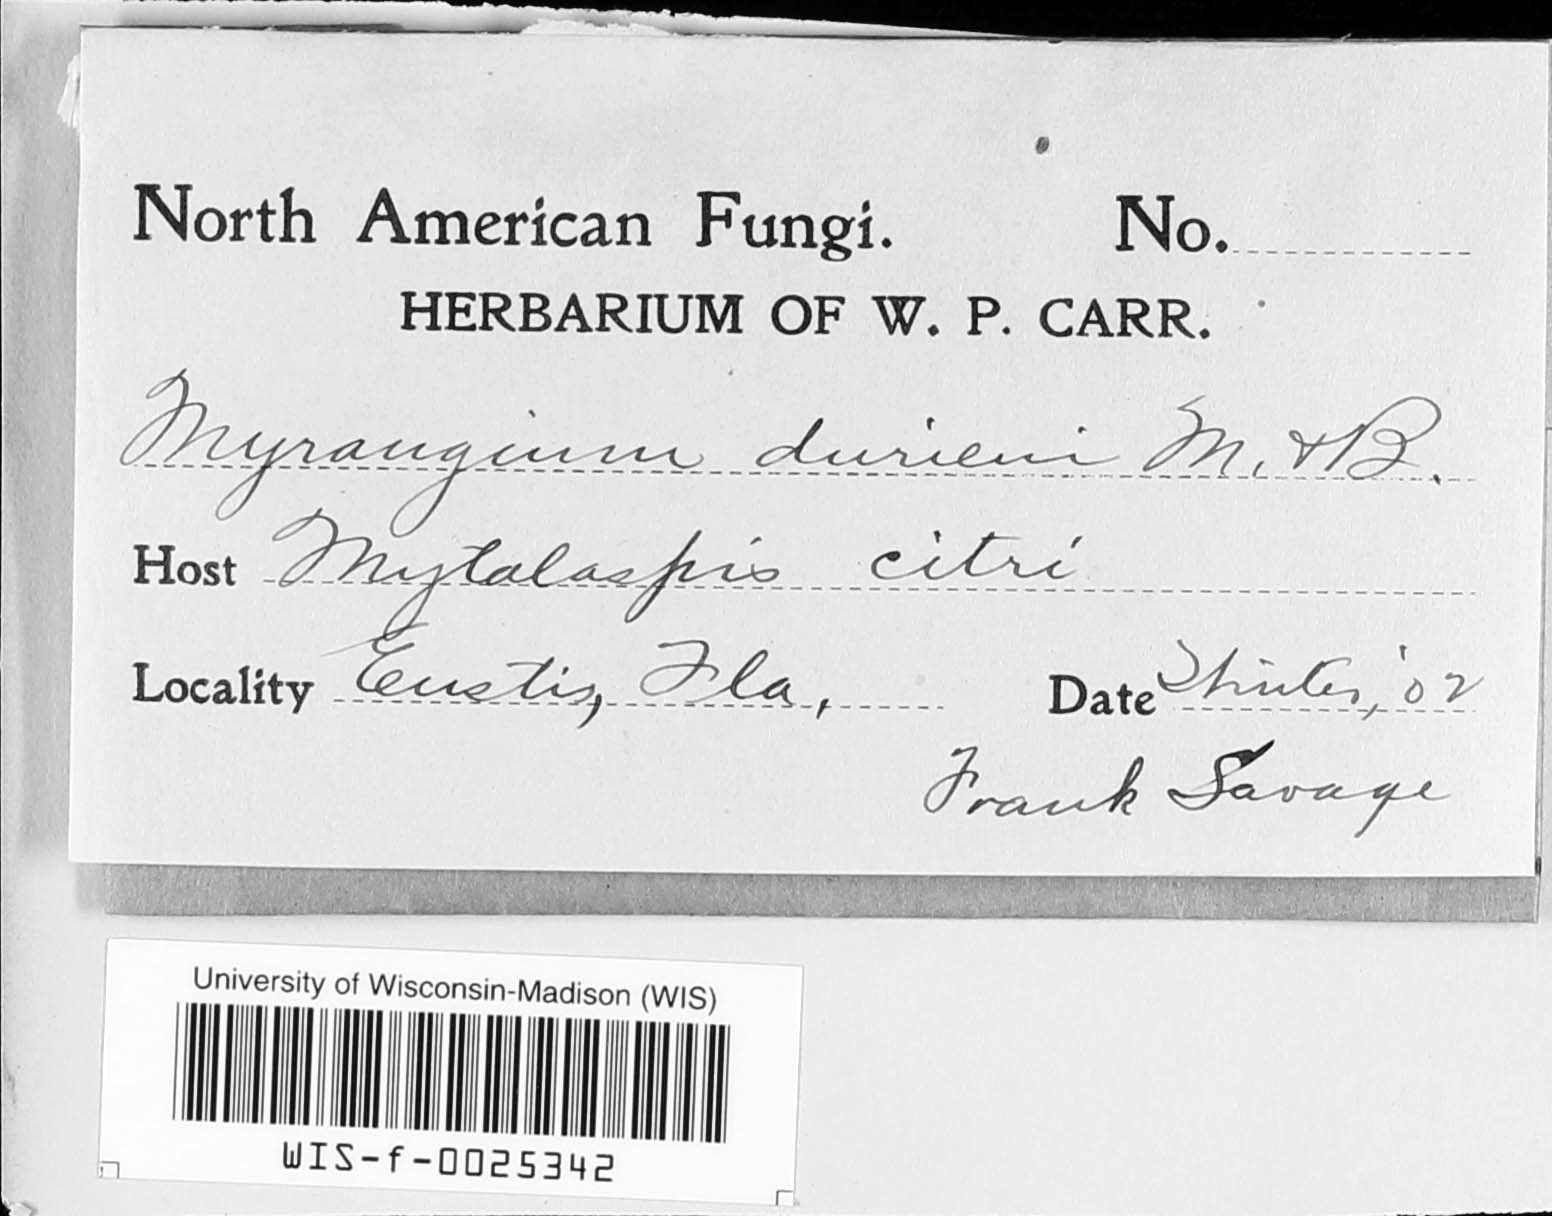 North American Fungi. No.
HERBARIUM OF W. P. CARR.
Myrangium durieui M. & B.
Host Mytalaspis citri
Locality Eustis, Fla, Date Winter, '02
Frank Savage
University of Wisconsin-Madison (WIS)
WIS-f-0025342